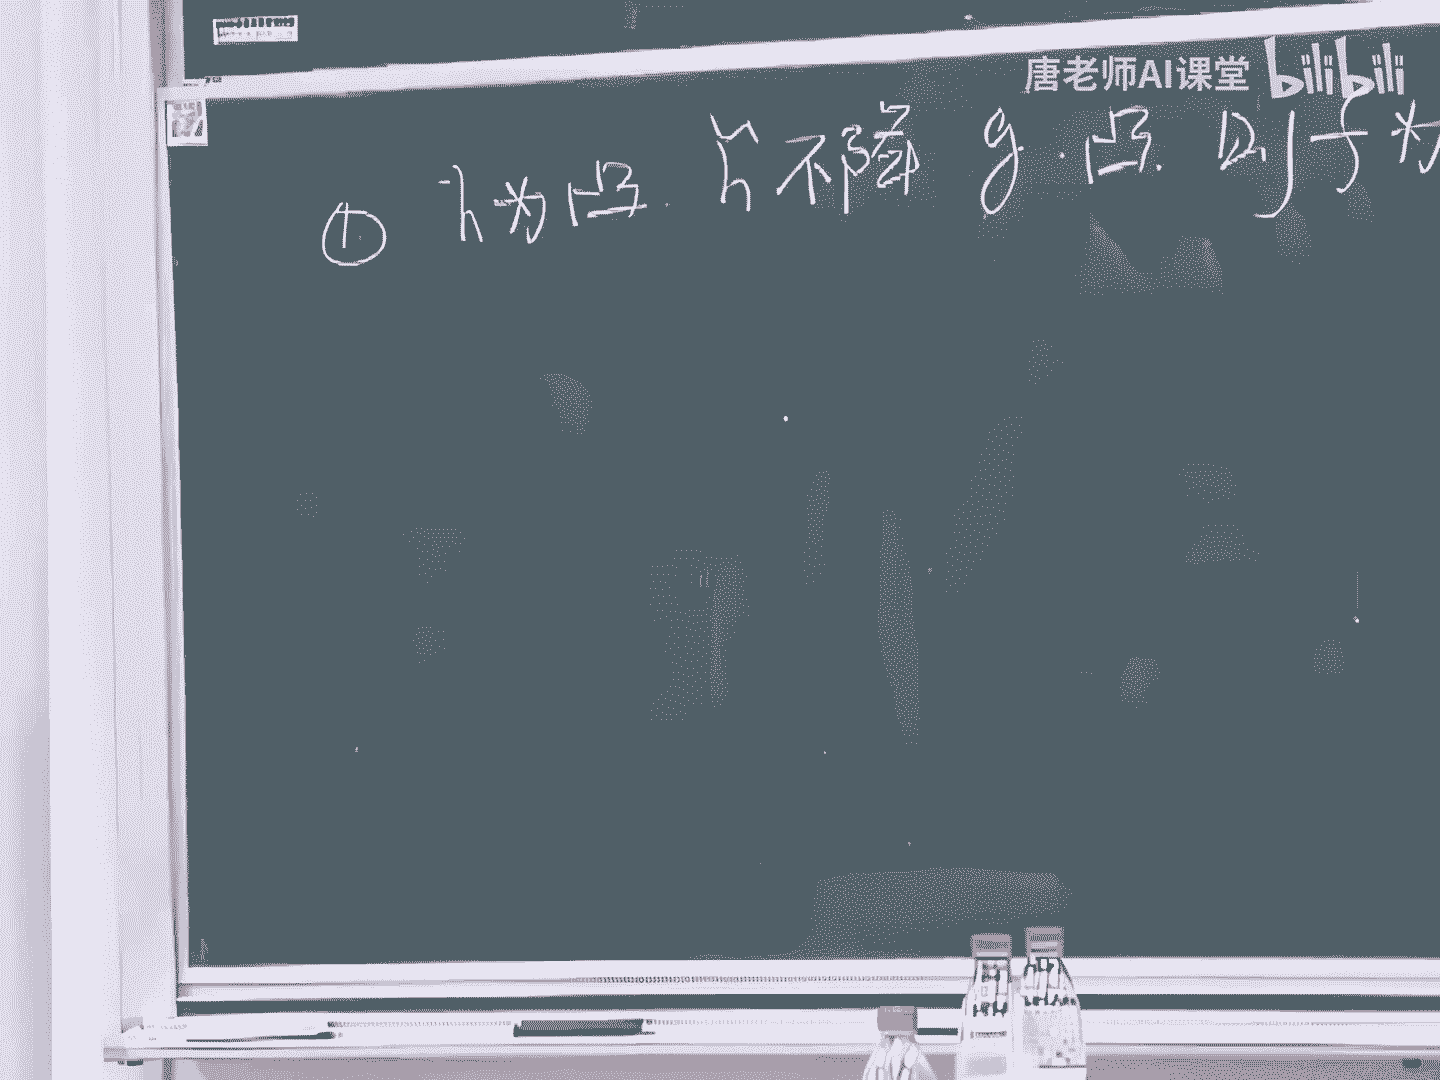 唐老师AI课堂 bilibili
① h为凸. h̃不降 g.凸. 则f为